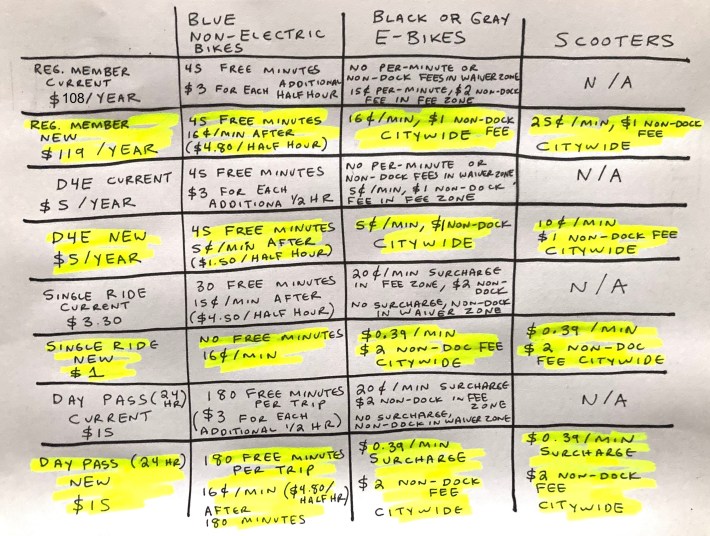 BLUE
NON-ELECTRIC
BIKES
BLACK OR GRAY
E-BIKES
SCOOTERS
REG. MEMBER
CURRENT
$108/YEAR
45 FREE MINUTES
$3 FOR EACH ADDITIONAL
HALF HOUR
NO PER-MINUTE OR
NON-DOCK FEES IN WAIVER ZONE
15¢ PER-MINUTE, $2 NON-DOCK
FEE IN FEE ZONE
N/A
REG. MEMBER
NEW
$119/YEAR
45 FREE MINUTES
16¢/MIN AFTER
($4.80/HALF HOUR)
16¢/MIN, $1 NON-DOCK
FEE
CITYWIDE
25¢/MIN, $1 NON-DOCK
FEE
CITYWIDE
D4E CURRENT
$5/YEAR
45 FREE MINUTES
$3 FOR EACH
ADDITIONA 1/2 HR
NO PER-MINUTE OR
NON-DOCK FEES IN WAIVER ZONE
5¢/MIN, $1 NON-DOCK
FEE IN FEE ZONE
N/A
D4E NEW
$5/YEAR
45 FREE MINUTES
5¢/MIN AFTER
($1.50/HALF HOUR)
5¢/MIN, $1 NON-DOCK
CITYWIDE
10¢/MIN
$1 NON-DOCK FEE
CITYWIDE
SINGLE RIDE
CURRENT
$3.30
30 FREE MINUTES
15¢/MIN AFTER
($4.50/HALF HOUR)
20¢/MIN SURCHARGE
IN FEE ZONE, $2 NON-
DOCK
NO SURCHARGE, NON-DOCK
IN WAIVER ZONE
N/A
SINGLE RIDE
NEW
$1
NO FREE MINUTES
16¢/MIN
$0.39/MIN
$2 NON-DOC FEE
CITYWIDE
$0.39/MIN
$2 NON-DOC
FEE CITYWIDE
DAY PASS (24
HR)
CURRENT
$15
180 FREE MINUTES
PER TRIP
($3 FOR EACH
ADDITIONAL 1/2 HR)
20¢/MIN SURCHARGE
$2 NON-DOCK IN FEE
ZONE
NO SURCHARGE,
NON-DOCK IN WAIVER ZONE
N/A
DAY PASS (24 HR)
NEW
$15
180 FREE MINUTES
PER TRIP
16¢/MIN ($4.80/
HALF HR)
AFTER
180 MINUTES
$0.39/MIN
SURCHARGE
$2 NON-DOCK
FEE
CITYWIDE
$0.39/MIN
SURCHARGE
$2 NON-DOCK
FEE
CITYWIDE